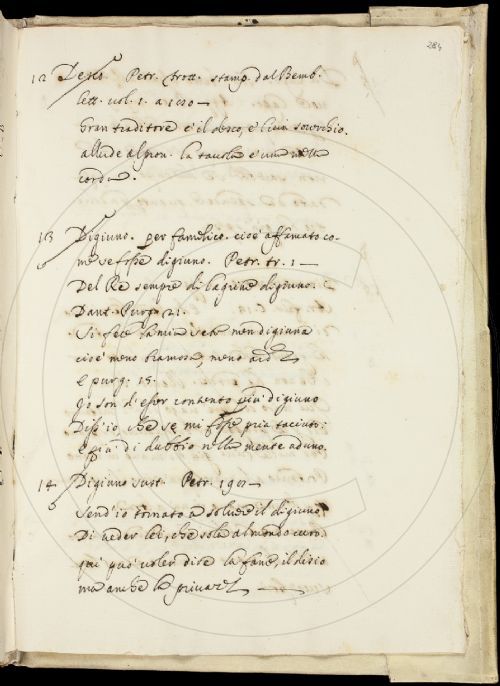 284
12 Desco. Petr. trott. stamp. dal Bemb.
lett. vol. 1. a
Gran traditore è il desco, e l'
allude al prou. la tauola è una
corda.
13 Digiuno. per famelico. cioè affamato co-
me se fosse digiuno. Petr. tr. 1 —
Del Re sempre di lagrime digiuno.
Dant. Purg. 21.
Si fece la mia sete men digiuna
cioè meno bramosa, meno
e purg: 15.
Io son d'esser contento più digiuno
Diss'io, che se mi fosse pria taciuto:
e più di dubbio nella mente aduno.
14 Digiuno sust. Petr.
Send'io tornato a soluere il digiuno
Di ueder lei, che sola al mondo curo.
qui può uoler dire la fame, il disio
ma anche la